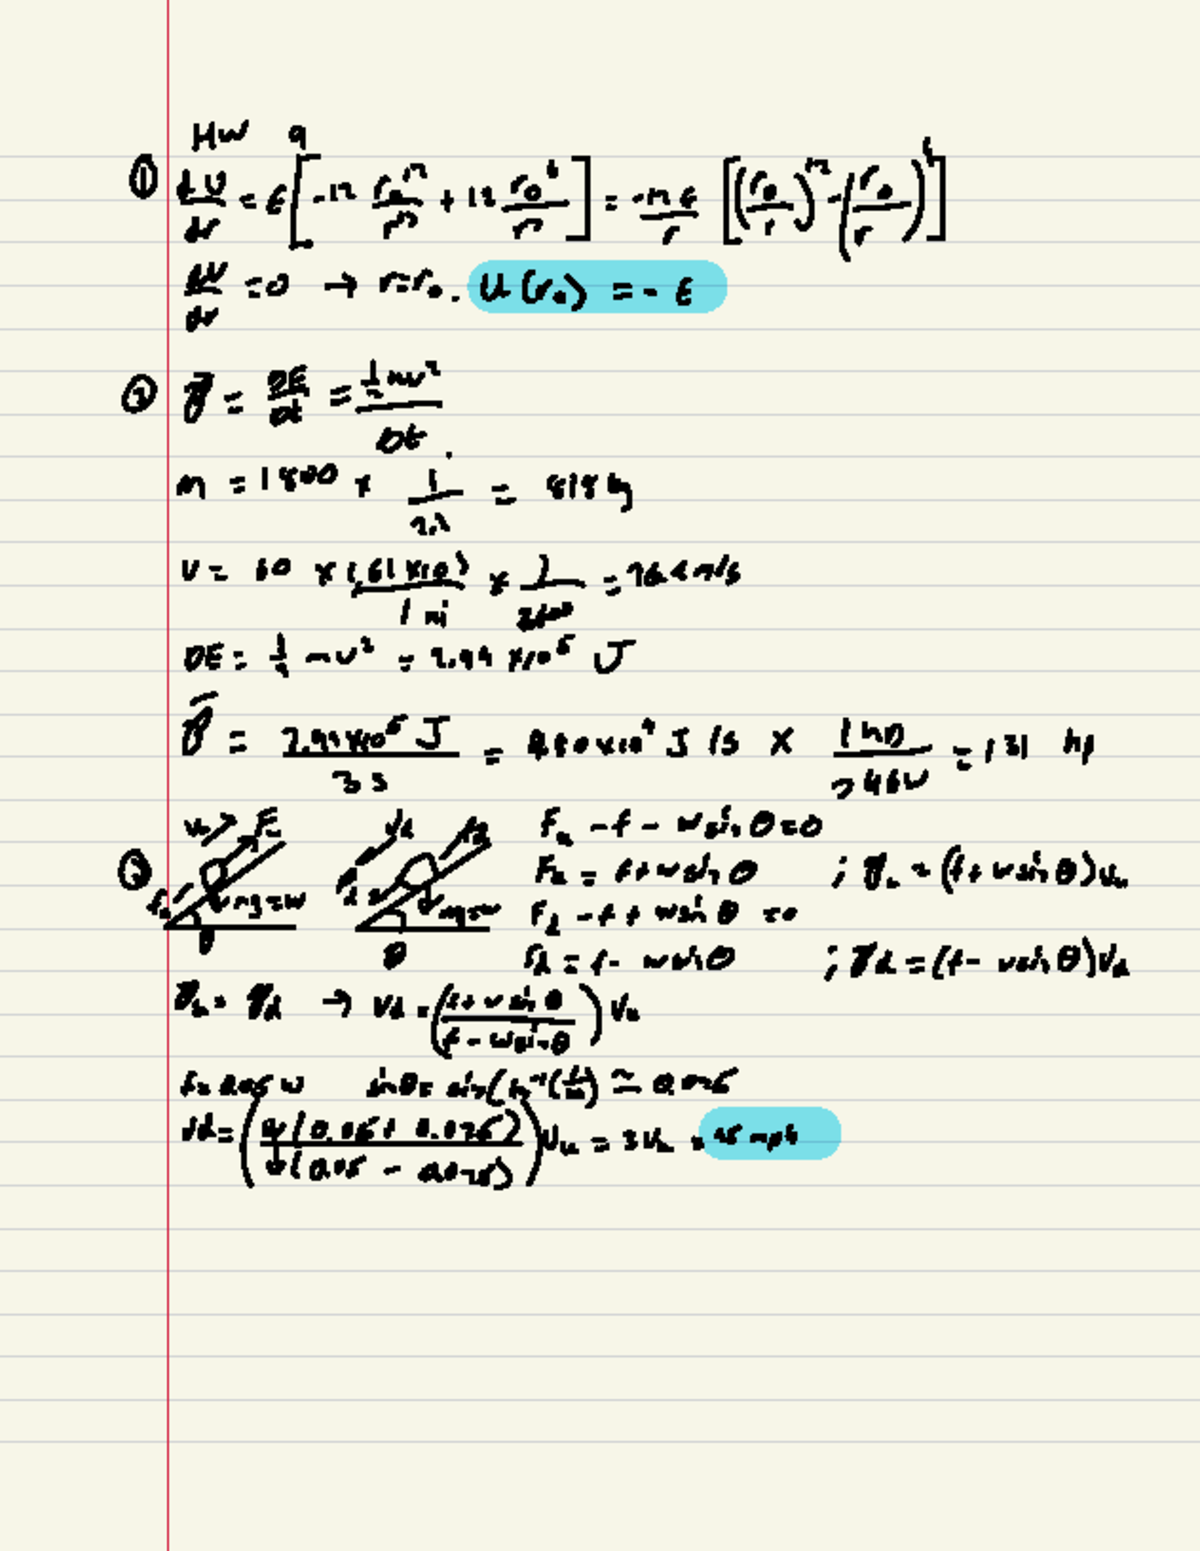 HW 9
① dU/dr = ε[-12 r₀¹²/r¹³ + 12 r₀⁶/r⁷] = -12ε/r [(r₀/r)¹² - (r₀/r)⁶]
dU/dr = 0 → r=r₀. U(r₀) = -ε
② P̄ = ΔE/Δt = ½mv²/Δt.
m = 1800 × 1/2.2 = 818 kg
v = 60 × (1.61×10³)/1 mi × 1/3600 = 26.8 m/s
ΔE = ½ mv² = 2.94 ×10⁵ J
P̄ = 2.94×10⁵ J/3 s = ×10⁴ J/s × 1 hp/746W = 131 hp
③ Fᵤ - f - w sin θ = 0
Fᵤ = f + w sin θ ; Pᵤ = (f + w sin θ)vᵤ
mg=w mg=w F_d - f + w sin θ = 0
θ θ F_d = f - w sin θ ; P_d = (f - w sin θ)v_d
Pᵤ = P_d → v_d = ((f + w sin θ)/(f - w sin θ)) vᵤ
f = 0.05 w sin θ = sin(tan⁻¹(1/40)) ≃ 0.025
v_d = (w(0.05 + 0.025)/w(0.05 - 0.025)) vᵤ = 3vᵤ = 45 mph